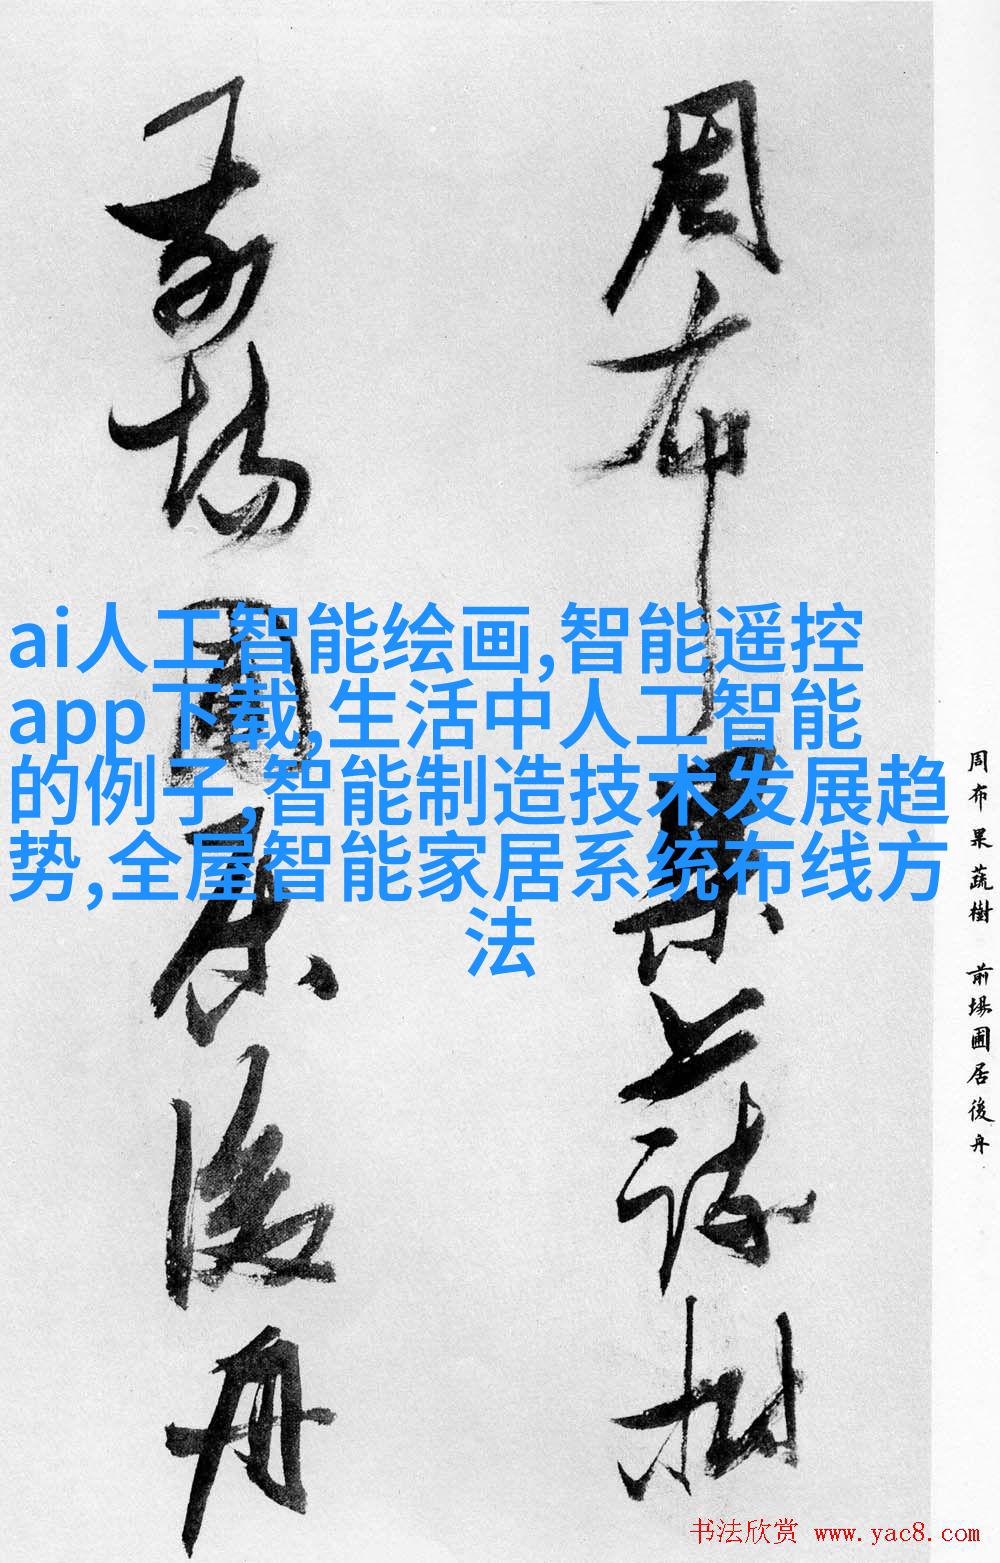 周布果蔬樹
前場圃居後舟
ai人工智能绘画,智能遥控
app下载,生活中人工智能
的例子,智能制造技术发展趋
势,全屋智能家居系统布线方
法
周布果蔬樹 前場圃居後舟
书法欣赏 www.yac8.com